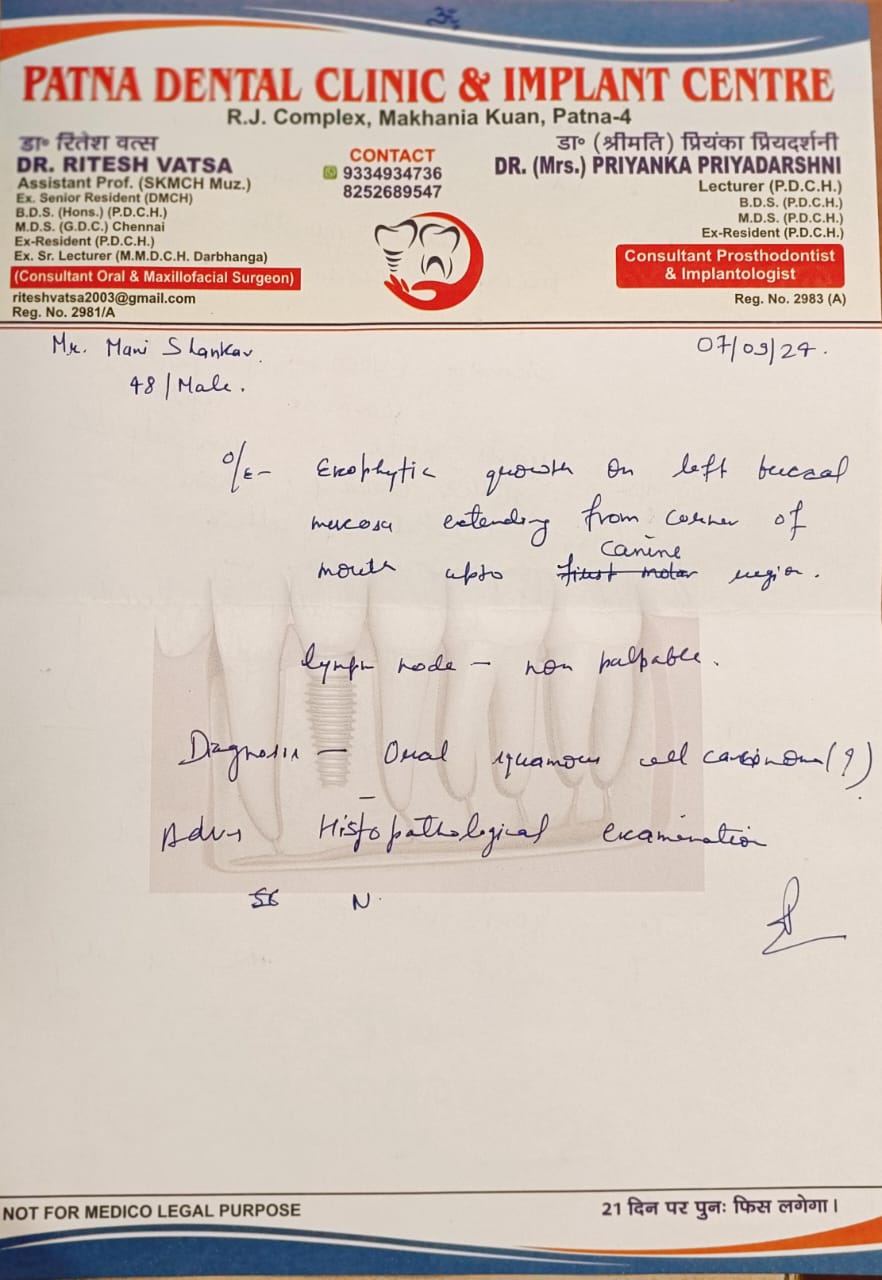 ॐ
PATNA DENTAL CLINIC & IMPLANT CENTRE
R.J. Complex, Makhania Kuan, Patna-4
डा॰ रितेश वत्स
DR. RITESH VATSA
Assistant Prof. (SKMCH Muz.)
Ex. Senior Resident (DMCH)
B.D.S. (Hons.) (P.D.C.H.)
M.D.S. (G.D.C.) Chennai
Ex-Resident (P.D.C.H.)
Ex. Sr. Lecturer (M.M.D.C.H. Darbhanga)
(Consultant Oral & Maxillofacial Surgeon)
riteshvatsa2003@gmail.com
Reg. No. 2981/A
CONTACT
9334934736
8252689547
डा॰ (श्रीमति) प्रियंका प्रियदर्शनी
DR. (Mrs.) PRIYANKA PRIYADARSHNI
Lecturer (P.D.C.H.)
B.D.S. (P.D.C.H.)
M.D.S. (P.D.C.H.)
Ex-Resident (P.D.C.H.)
Consultant Prosthodontist
& Implantologist
Reg. No. 2983 (A)
Mr. Mani Shankar.
07/09/24.
48/Male.
O/E- Exophytic growth on left buccal
mucosa extending from corner of
canine
mouth upto first molar region.
lymph node - non palpable.
Diagnosis - Oral squamous cell carcinoma (?)
Adv, Histopathological examination
N.
NOT FOR MEDICO LEGAL PURPOSE
21 दिन पर पुनः फिस लगेगा।